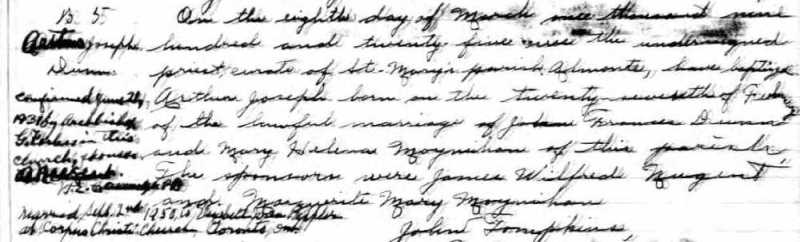 B. 5
Arthur Joseph
Dunn
confirmed June 21,
1931 by Archbishop
in this
church,
married Sept. 2nd 1950, to Elizabeth
at Corpus Christi Church, Toronto, Ont.
On the eighth day of March one thousand nine
hundred and twenty five we the undersigned
priest, curate of St. Mary's parish Almonte, have baptized
Arthur Joseph born on the twenty seventh of
of the lawful marriage of John Francis Dunn
and Mary Helena Moynihan of this parish.
The sponsors were James Wilfred Nugent
and Marguerite Mary Moynihan
John Tompkins,